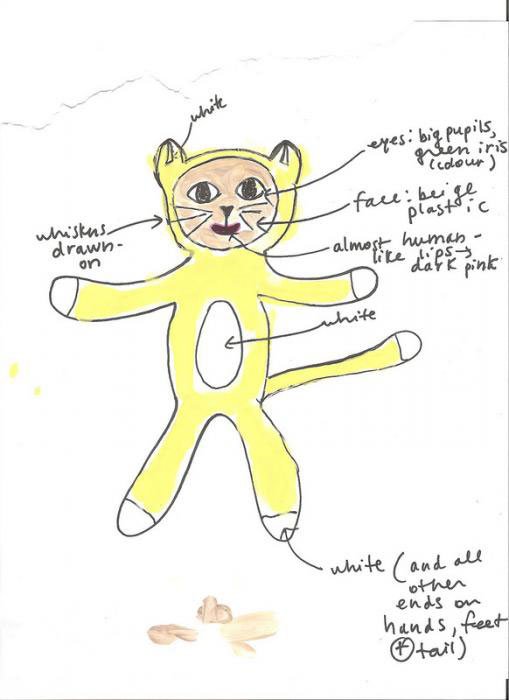 white
eyes: big pupils,
green iris
(colour)
face: beige
plastic
whiskers
drawn-
on
almost human-
like lips →
dark pink
white
white (and all
other
ends on
hands, feet
+ tail)